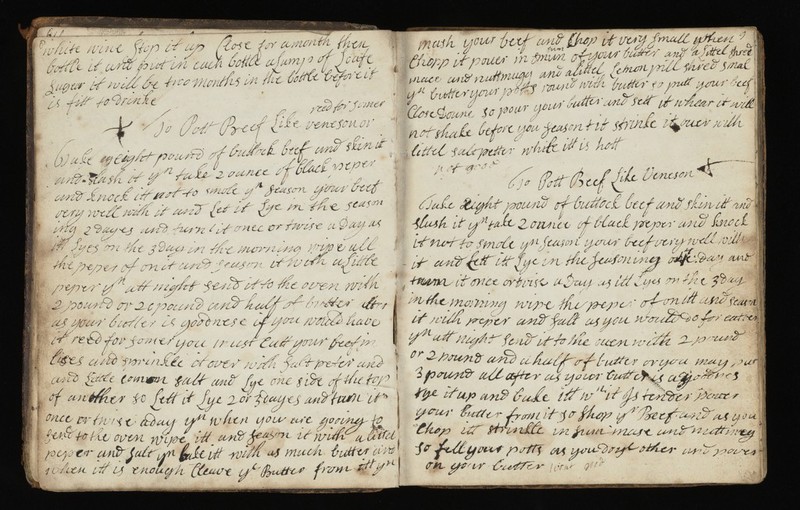 white wine stop it up Close for a month then
bottle it and put in each bottle a lump of Loafe
Sugar it will be two months in the bottle before it
is fitt to drinke
red for somer
To Pott Beef Like veneson or
Take eight pound of buttock beef and skin it
and slash it yn take 2 ounce of black peper
and knock itt not to smole yn season your beef
very well with it and Let it Lye in the season
ing 2 dayes and turn it once or twise a Day as
itt Lyes on the 3 day in the morning wipe all
the peper of on it and season it with a Little
peper yn att night send it to the oven with
2 pound or 2 pound and half of butter
as your butter is goodnese if you would have
it red for somer you must Cutt your beef in
and sprinkle it over with salt peter and
and Little comon salt and Lye one side of the top
of another so Lett it Lye 2 or 3 dayes and turn it
once or twise a day yn when you are going to
send to the oven wipe itt and season it with a littel
peper and salt yn bake itt with as much butter and
when itt is enough Cleave ye Butter from itt yn
mash your beef and Chop it very small when
Chopp it pouer in sum of your butter and a littel shred
mace and nuttmugg and a littel Lemon pill shred smal
yn butter your potts round with butter so putt your beef
Close Doune so pour your butter and sett it whear it will
not shake before you season it strinkle it ouer with
littel salt petter while itt is hott
To Pott Beef Like Veneson
Take eight pound of buttock beef and skin itt and
slush it yn take 2 ounce of black peper and knock
it not to smole yn season your beef very well with
it and Lett itt Lye in the seasoning day and
turn it once or twise a Day as itt Lyes on the 3 day
in the morning wipe the peper of on itt and season
it with peper and salt as you would do for eating
yn att night send it to the oven with 2 pound
or 2 pound and a half of butter or you may put
3 pound all after as your butter is a goodnes
tye it up and bake itt wn it Is tender pouer
your butter from it so shop ye Beef and as you
Chop itt strinkle in sum mase and nuttmeg
so fill your potts as you do ye other and pouer
on your butter